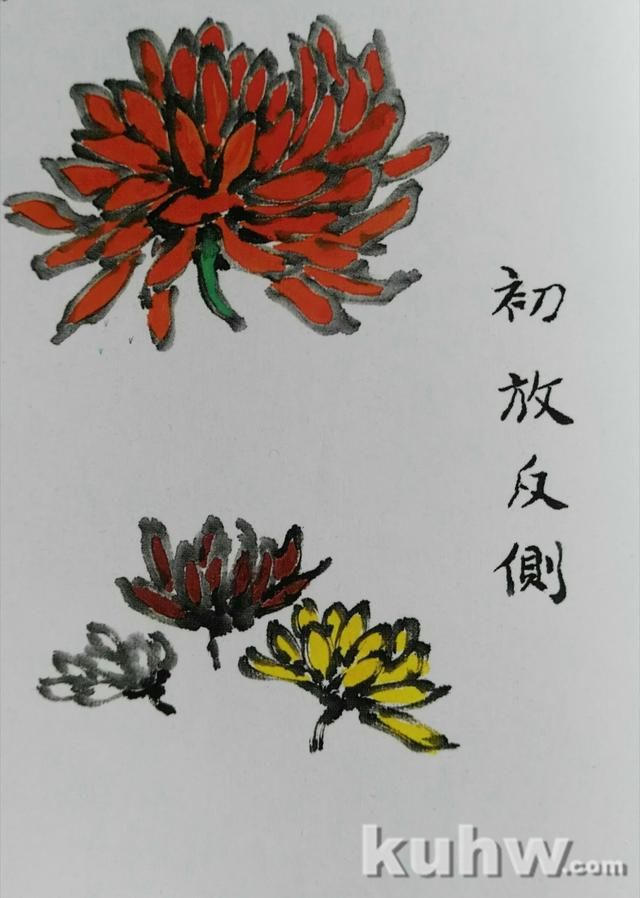 初放反側
kuhw.com